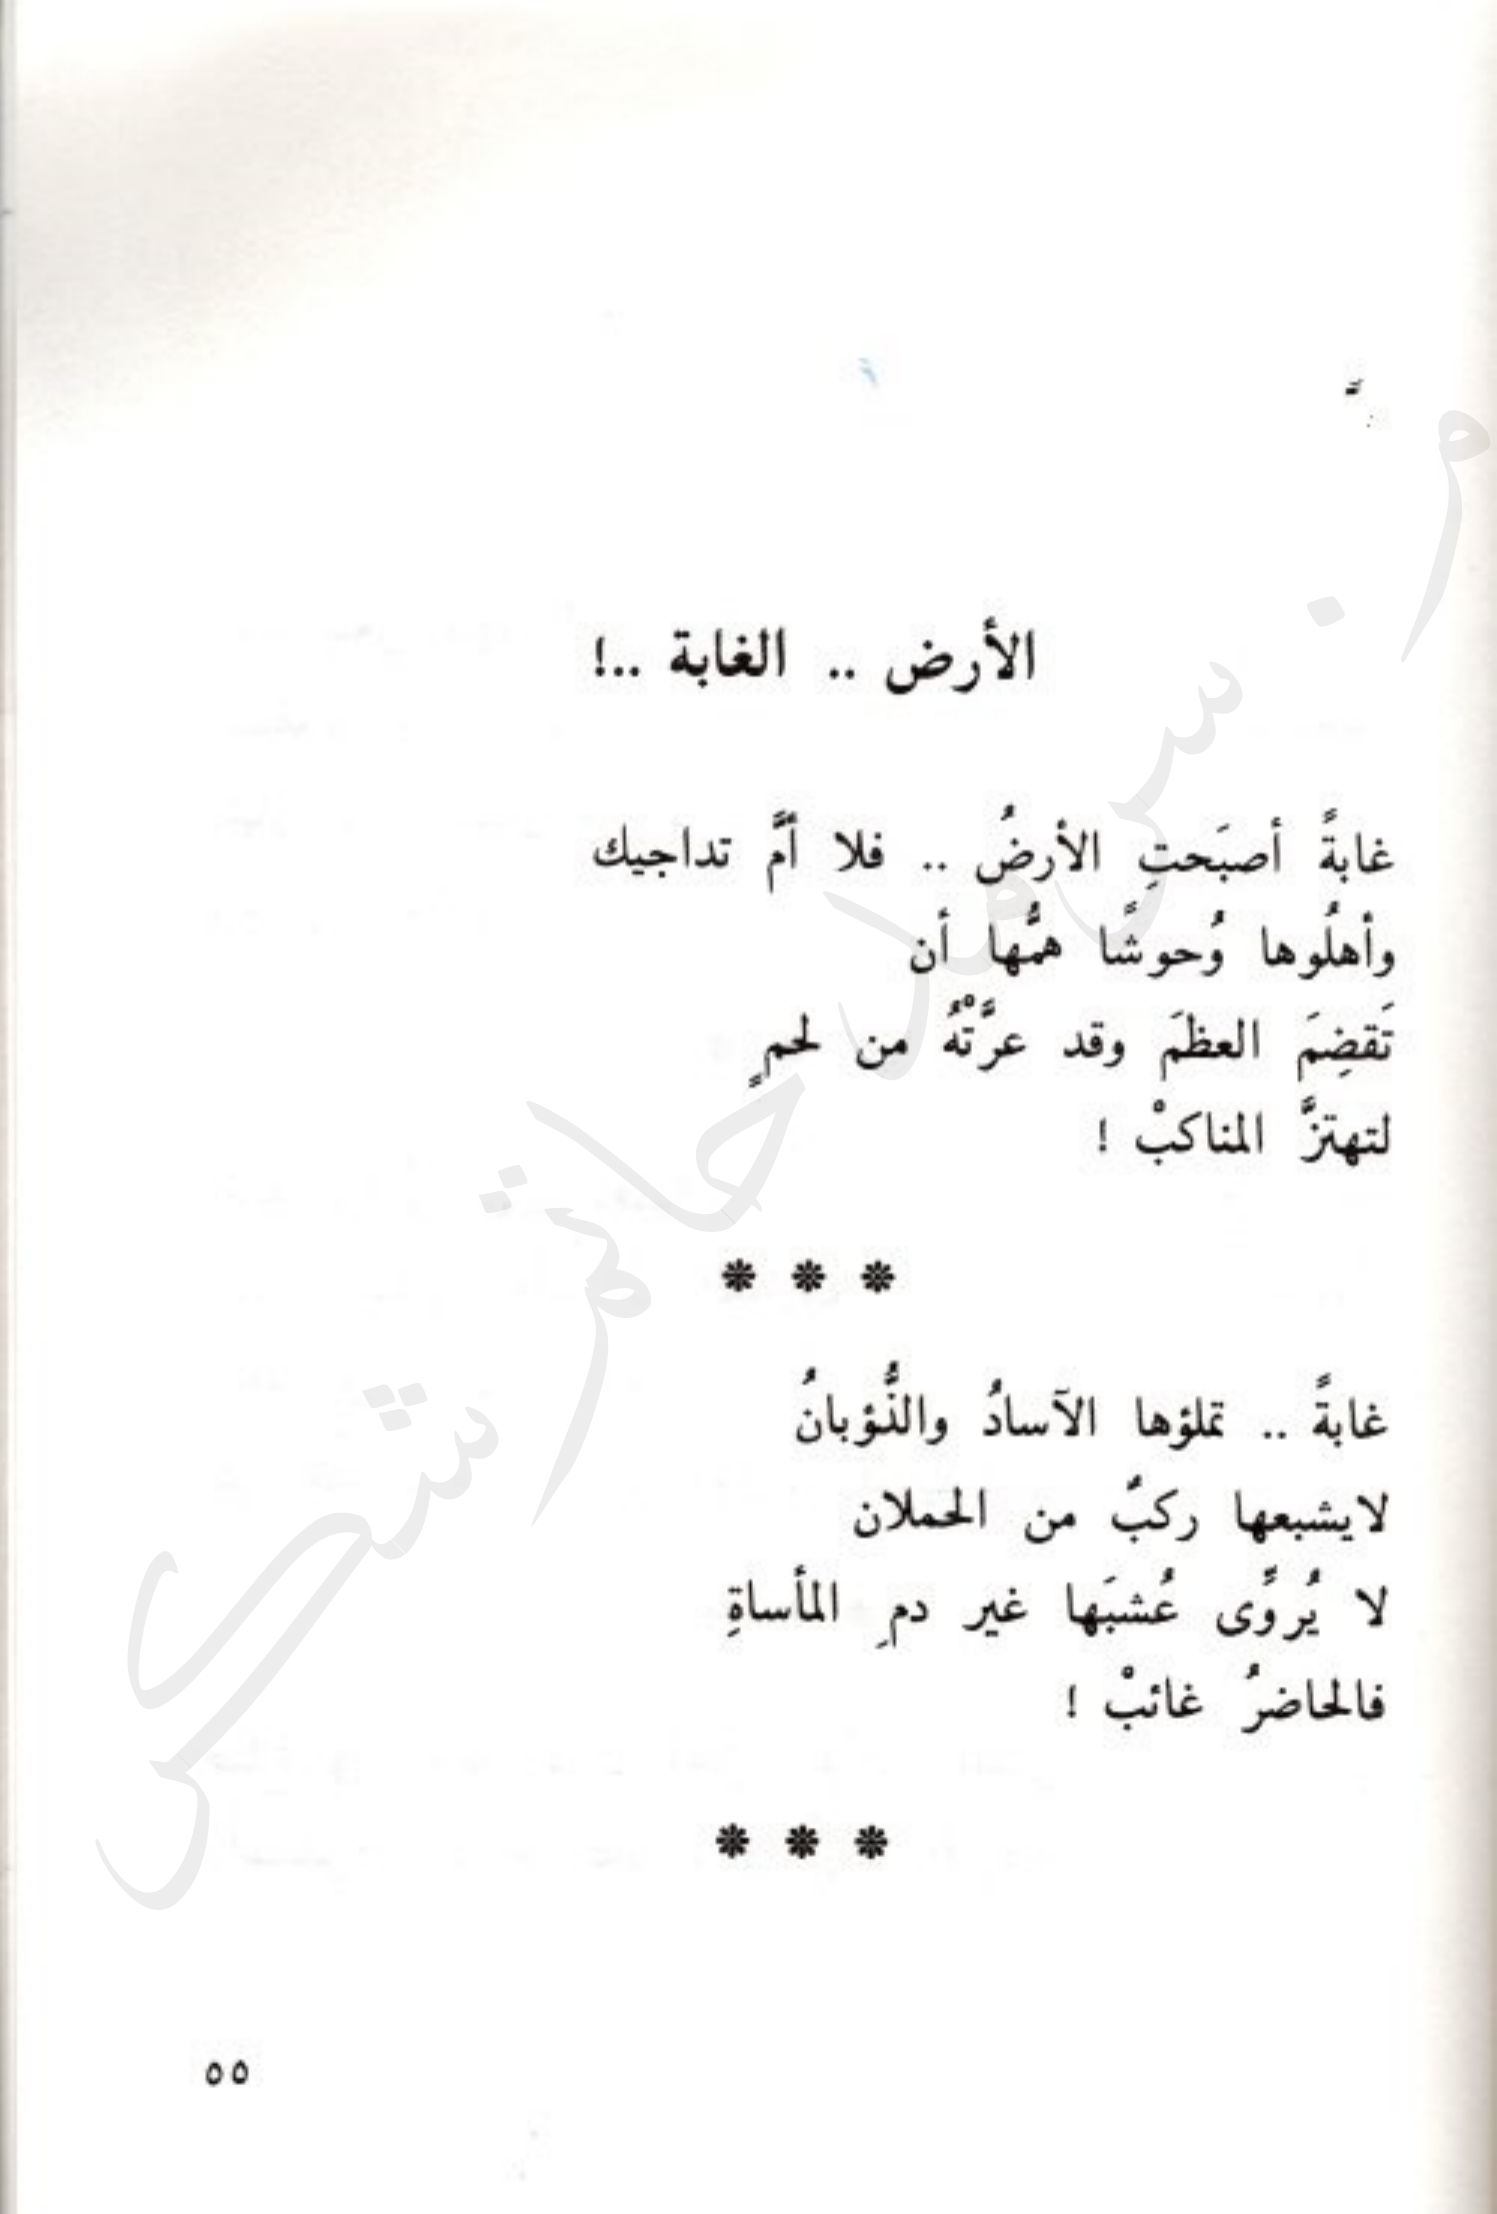 الأرض .. الغابة ..!
غابةً أصبَحتِ الأرضُ .. فلا أمَّ تداجيك
وأهلُوها وُحوشًا همُّها أن
تَقضِمَ العظمَ وقد عرَّتْهُ من لحمٍ
لتهتزَّ المناكبْ !
* * *
غابةً .. تملؤها الآسادُ والذُّؤبانُ
لايشبعها ركبٌ من الحملان
لا يُروَّى عُشبَها غير دمِ المأساةِ
فالحاضرُ غائبْ !
* * *
٥٥